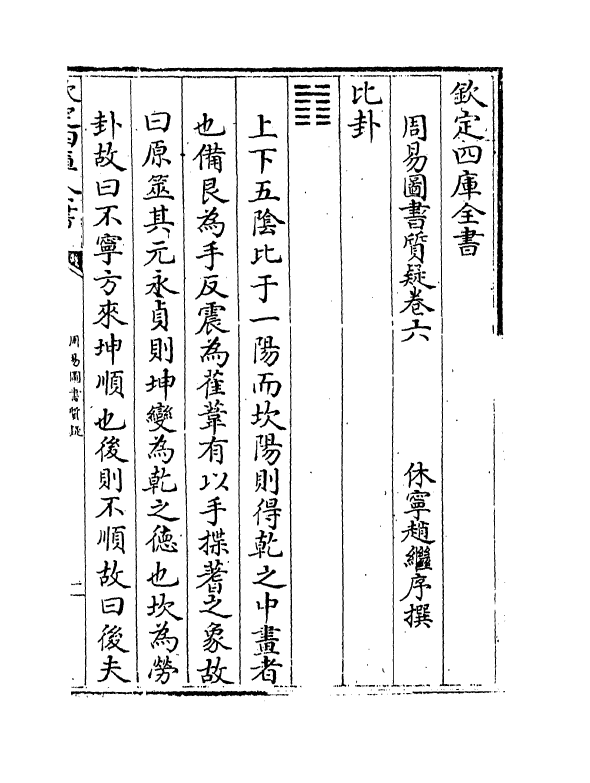 欽定四庫全書
周易圖書質疑卷六
休寧趙繼序撰
比卦
上下五陰比于一陽而坎陽則得乾之中畫者
也備艮為手反震為萑葦有以手揲蓍之象故
曰原筮其元永貞則坤變為乾之德也坎為勞
卦故曰不寧方來坤順也後則不順故曰後夫
欽定四庫全書
周易圖書質疑
一